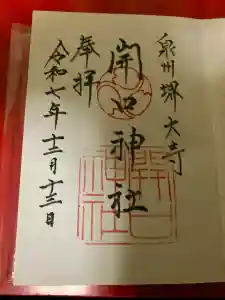 泉州堺大寺
開口神社
奉拝
令和七年十二月十三日
開口神社